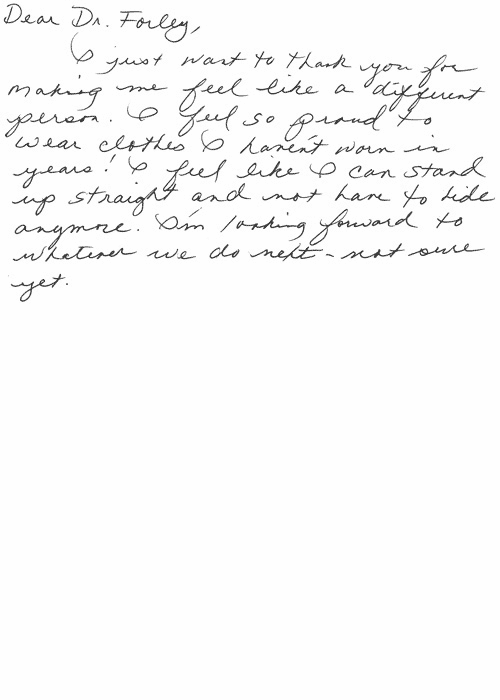 Dear Dr. Forley,
I just want to thank you for
making me feel like a different
person. I feel so proud to
wear clothes I haven't worn in
years! I feel like I can stand
up straight and not have to hide
anymore. I'm looking forward to
whatever we do next - not sure
yet.